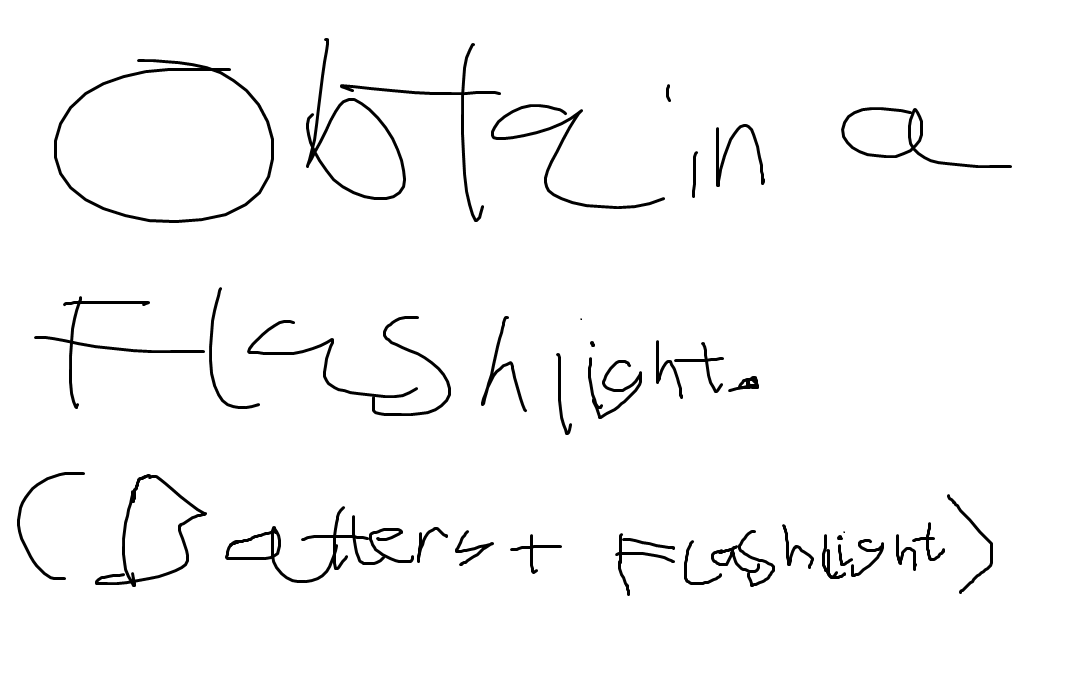 Obtain a
Flashlight.
(Batters + Flashlight)